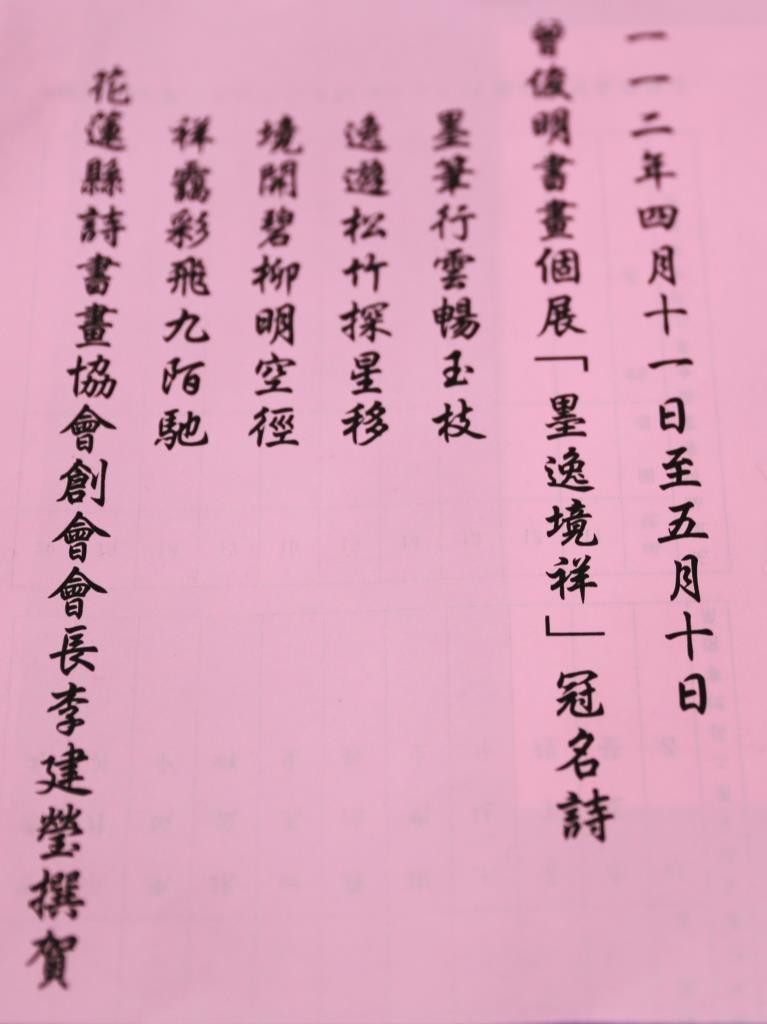 一一二年四月十一日至五月十日
曾俊明書畫個展「墨逸境祥」冠名詩
墨筆行雲暢玉枝
逸遊松竹探星移
境開碧柳明空徑
祥靄彩飛九陌馳
花蓮縣詩書畫協會創會會長李建瑩撰賀